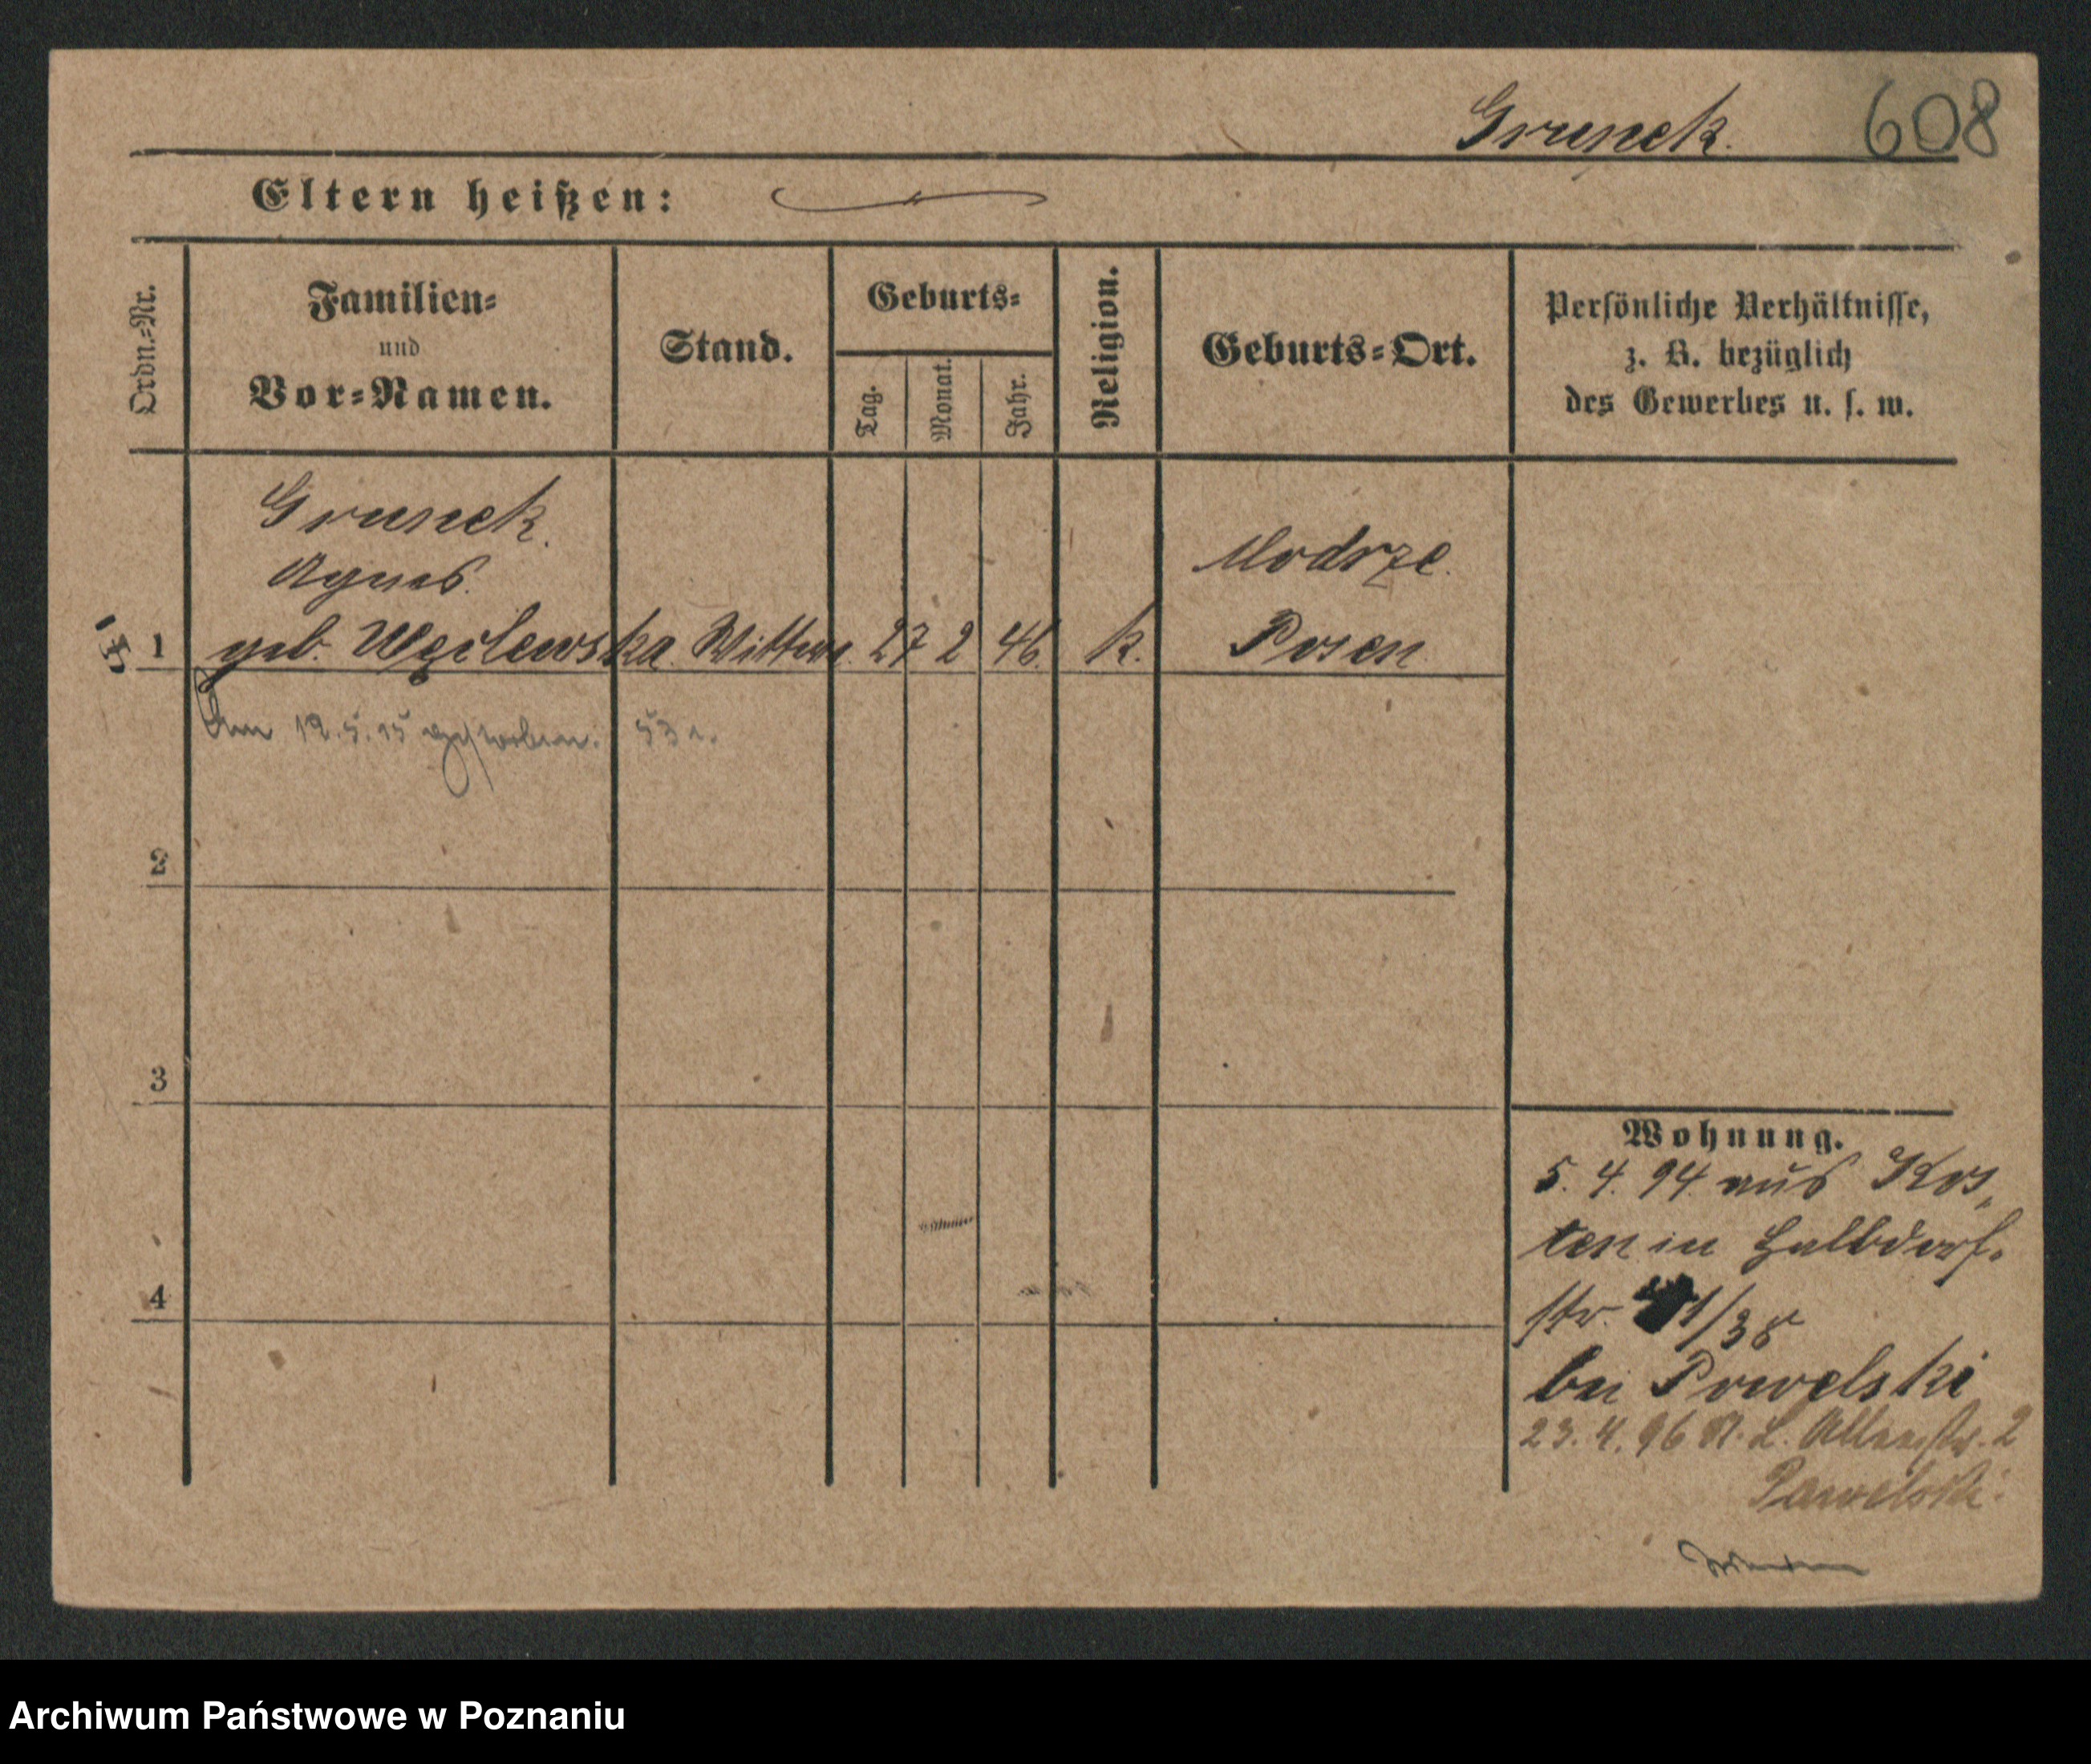 Grunek. 608
Eltern heißen:
Ordn.=Nr.
Familien=
und
Vor=Namen.
Stand.
Geburts=
Tag.
Monat.
Jahr.
Religion.
Geburts=Ort.
Persönliche Verhältnisse,
z. B. bezüglich
des Gewerbes u. s. w.
Grunek.
Agnes.
1 geb. Wezilewska. Wittwe. 27 2 46. k.
Modrze.
Posen.
Am 12.5.15 gestorben.
2
3
4
Wohnung.
5. 4. 94 aus Kos„
ten in Halbdorf=
str. /38
bei Powelski
23. 4. 96 2
Pawelski.
Archiwum Państwowe w Poznaniu